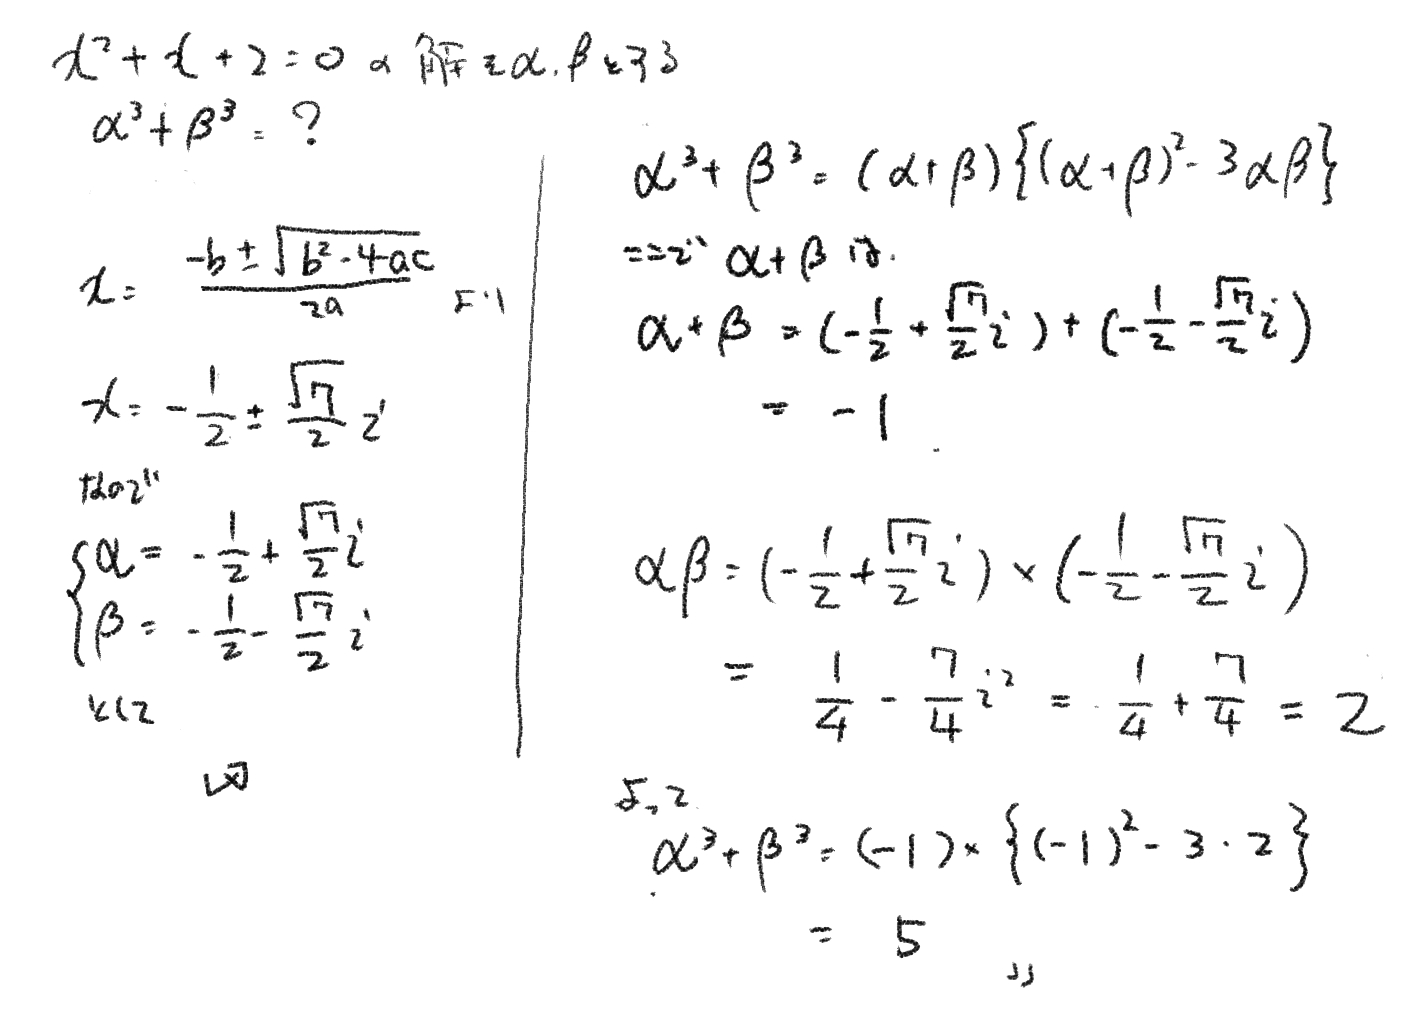 x²+x+2=0の解をα,βとする
α³+β³=?
x= (-b±√(b²-4ac))/2a より
x= -1/2 ± √7/2 i
なので
{α= -1/2 + √7/2 i
β= -1/2 - √7/2 i
として
α³+β³=(α+β){(α+β)²-3αβ}
ここで α+βは.
α+β = (-1/2 + √7/2 i) + (-1/2 - √7/2 i)
= -1
αβ=(-1/2 + √7/2 i)×(-1/2 - √7/2 i)
= 1/4 - 7/4 i² = 1/4 + 7/4 = 2
よって
α³+β³=(-1)×{(-1)²-3・2}
= 5